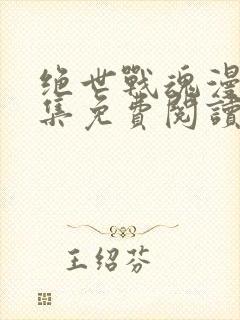 绝世戰魂漫
集免費閱讀
王绍芬